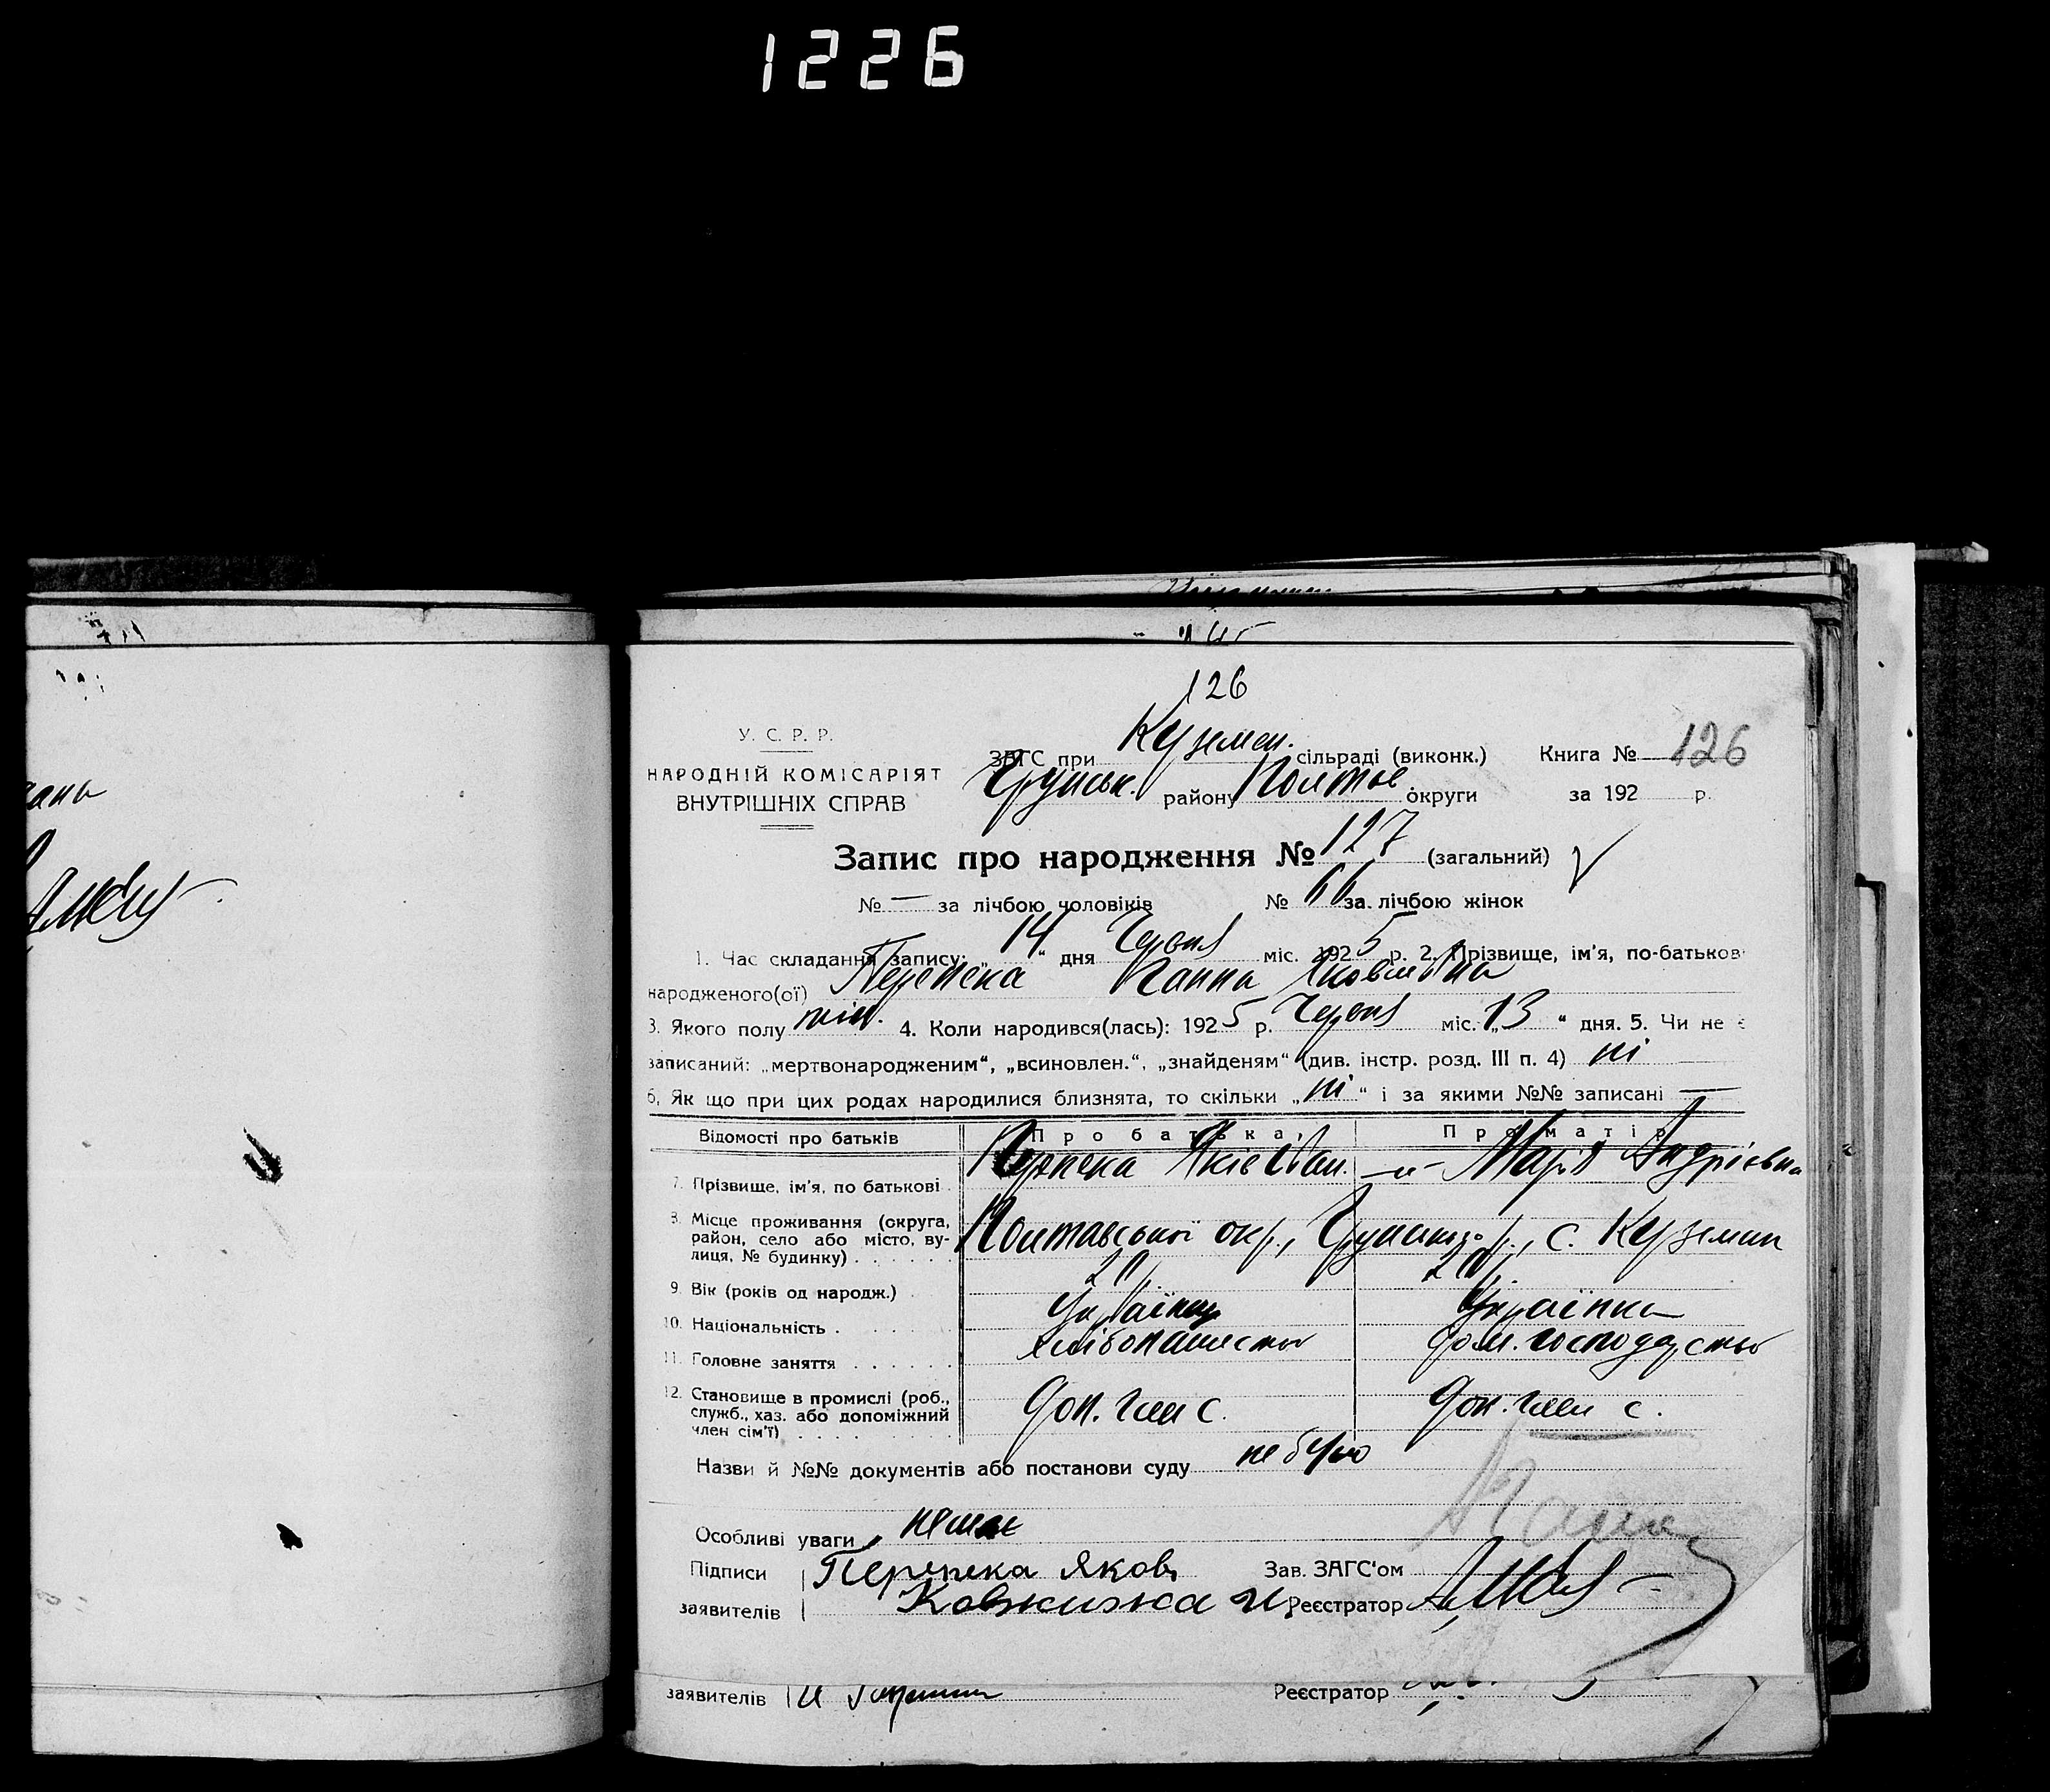 1226
126
У. С. Р. Р.
НАРОДНІЙ КОМІСАРІЯТ
ВНУТРІШНІХ СПРАВ
ЗАГС при Куземен. сільраді (виконк.)
Грунськ. району Полтов. округи
Книга № 126
за 192 р.
Запис про народження № 127 (загальний)
№ — за лічбою чоловіків № 66 за лічбою жінок
1. Час складання запису: „ 14 “ дня Червня міс. 1925 р. 2. Прізвище, ім'я, по-батьков
народженого(ої) Перепека Ганна Яковлівна
3. Якого полу жін. 4. Коли народився(лась): 1925 р. Червня міс. „ 13 “ дня. 5. Чи не є
записаний: „мертвонародженим“, „всиновлен.“, „знайденям“ (див. інстр. розд. III п. 4) ні
6. Як що при цих родах народилися близнята, то скільки „ ні “ і за якими №№ записані —
Відомості про батьків Про батька, Про матір
7. Прізвище, ім'я, по батькові Перепека Яків Іван. —"— Марія Андріївна
8. Місце проживання (округа,
район, село або місто, ву-
лиця, № будинку) Полтавської окр., р., с. Куземин
9. Вік (років од народж.)
10. Національність Українець Українка
11. Головне заняття хлібопашество дом. господарство
12. Становище в промислі (роб.,
служб., хаз. або допоміжний
член сім'ї) Доп. член с. Доп. член с.
Назви й №№ документів або постанови суду не було
Особливі уваги немає
Підписи Перепека Яков Зав. ЗАГС'ом
заявителів Реєстратор
заявителів Реєстратор